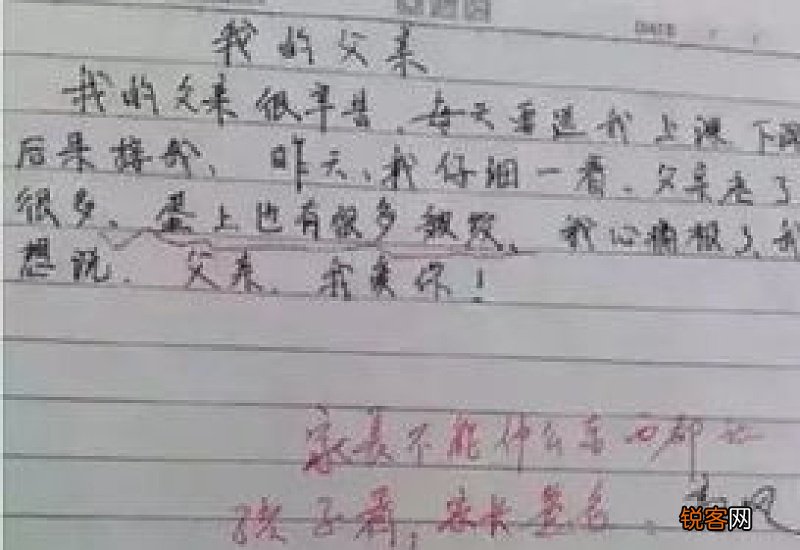 DATE
我的父亲
我的父亲很辛苦,每天要送我上课下课
后来接我、昨天、我仔细一看、父亲老了
很多、蛋上也有很多皱纹、我心痛极了、我
想说、父亲、我爱你!
家长不能什么东西都让
孩子看,家长签名:
锐客网